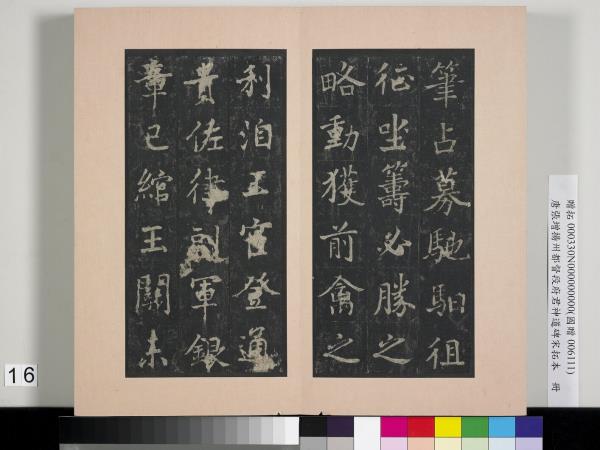 筆占募馳駉徂
征坐籌必勝之
略動獲前禽之
利洎王官登通
貴佐律副軍銀
章已綰玉關未
贈拓 000330N000000000(國贈 006111)
唐張增揚州都督段府君神道碑宋拓本 冊
16